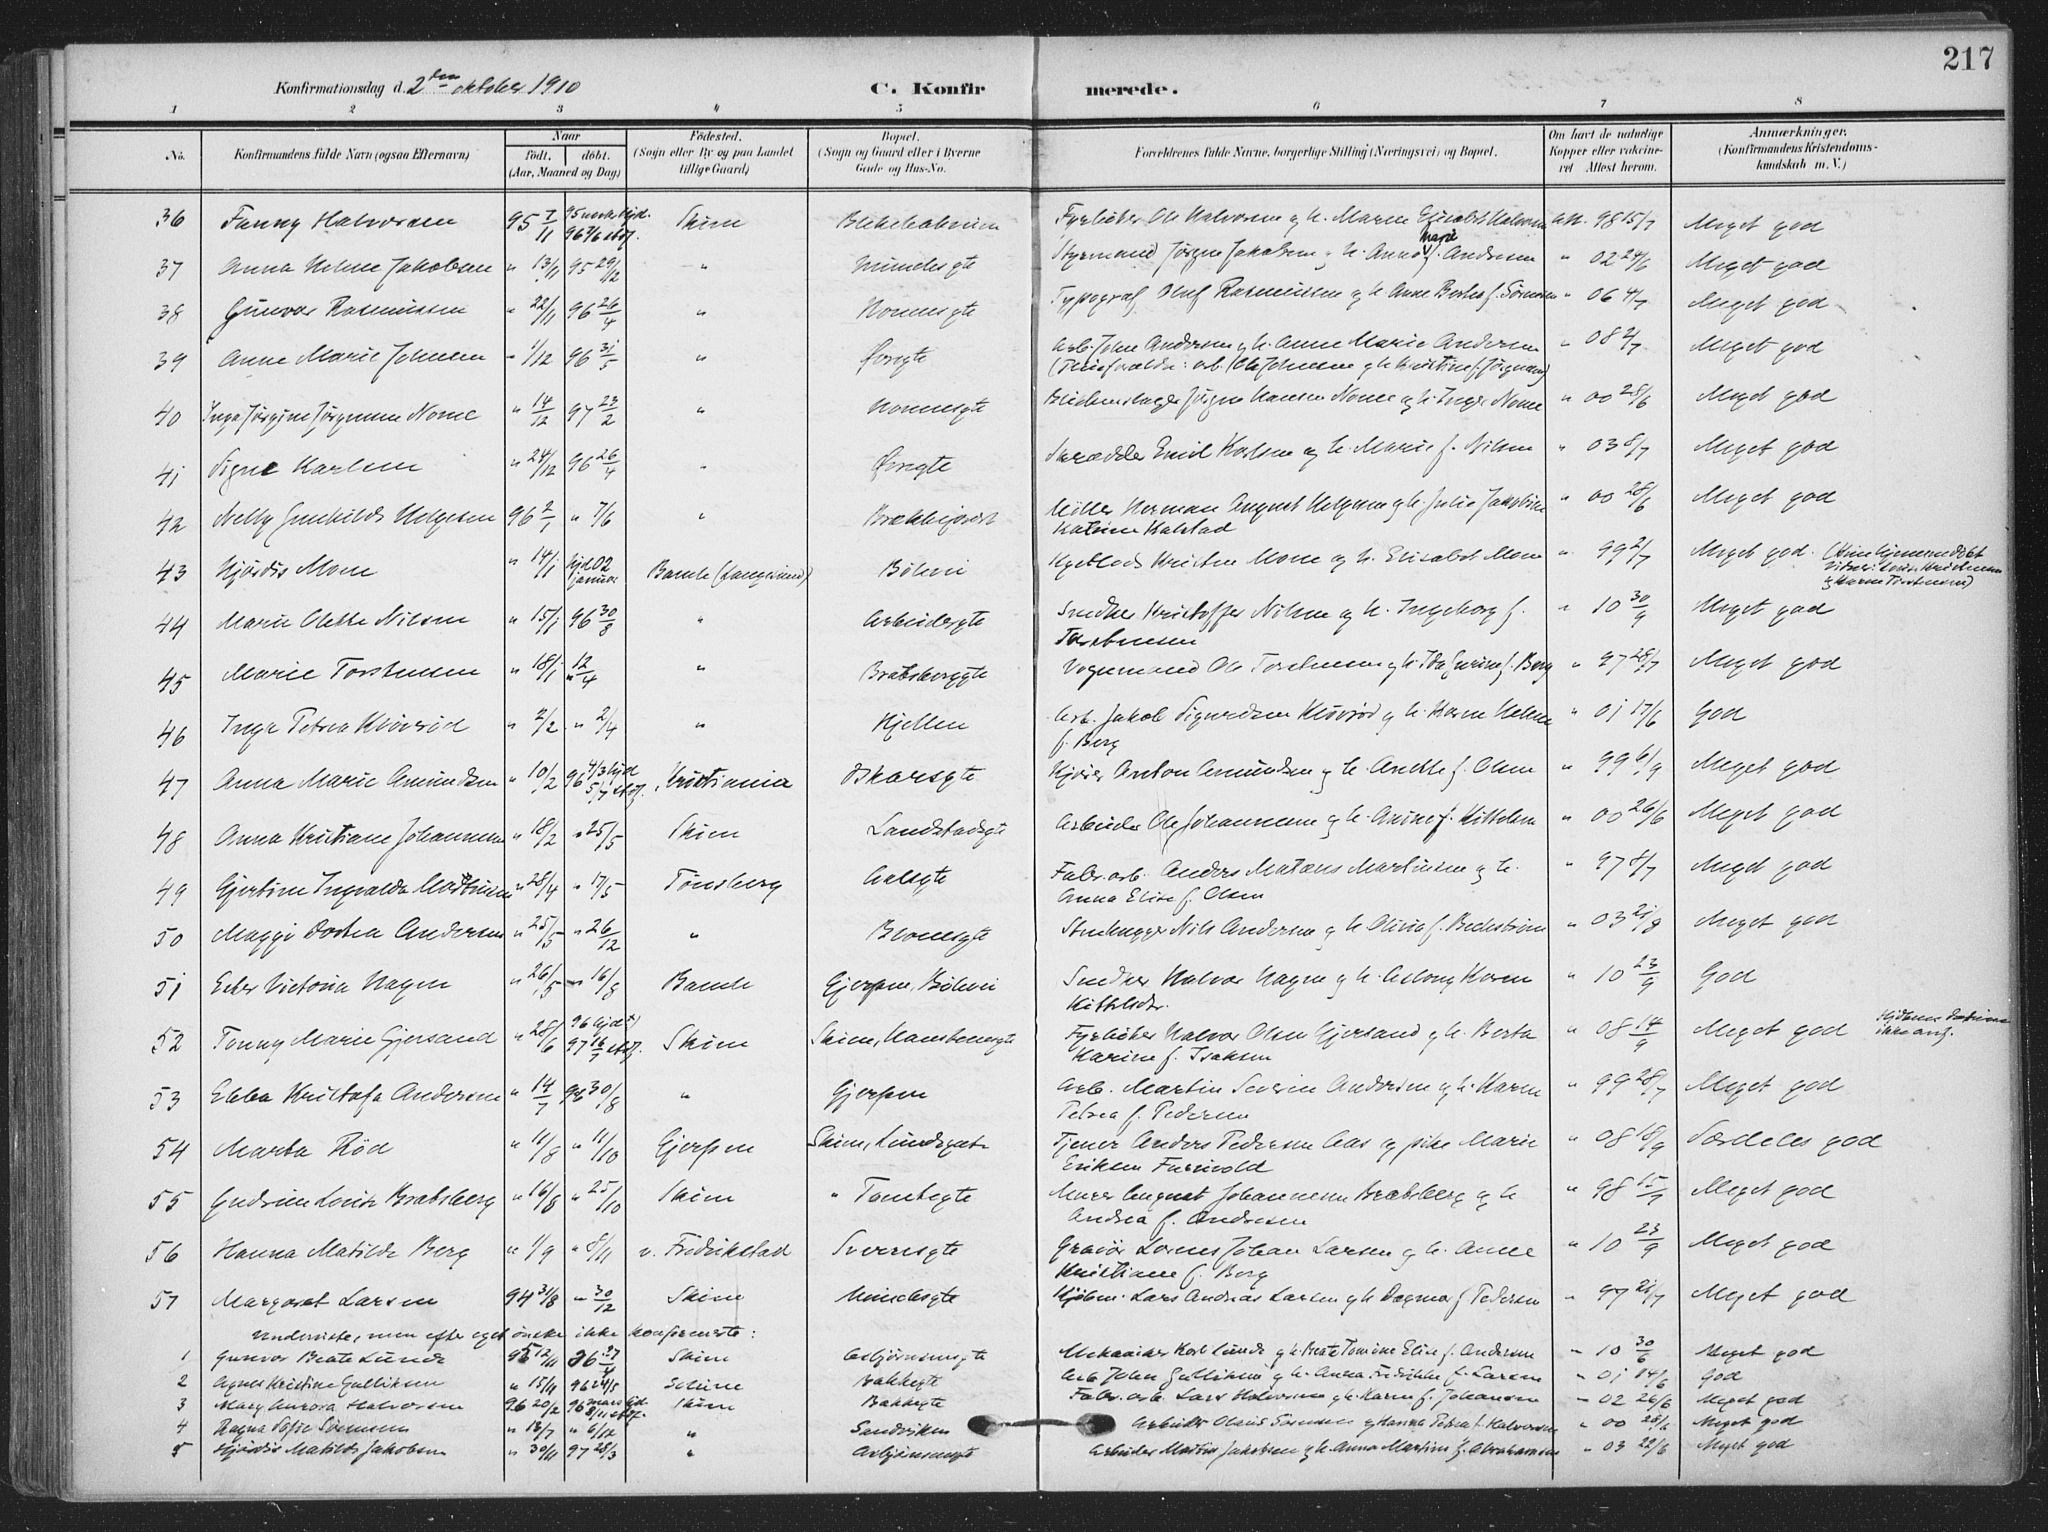 217
Konfirmationsdag d. 2den oktober 1910 C. Konfirmerede.
1 2 3 4 5 6 7 8
No. Konfirmandens fulde Navn (ogsaa Efternavn) Naar født. døbt. (Aar, Maaned og Dag) Fødested. (Sogn eller By og paa Landet tillige Gaard) Bopæl. (Sogn og Gaard eller i Byerne Gade og Hus-No. Forældrenes fulde Navne, borgerlige Stilling (Næringsvei) og Bopæl. Om havt de naturlige Kopper eller vaccineret Attest herom. Anmærkninger. (Konfirmandens Kristendomskundskab m. V.)
36 Fanny Halvorsen 95 7/11 Skien Fyrbøter Ole Halvorsen g h. Maren Elisabet Halvorsen att. 98 15/7 Meget god
37 Anna Helene Jakobsen " 13/11 95 29/12 " Mundesgte Styrmand Jørgen Jakobsen g h. Anna Marie f. Andersen " 02 24/6 Meget god
38 Gunvor Rasmussen " 22/11 96 26/4 " Nomesgte Typograf Oluf Rasmussen g h. Anne Berthe f. Sørensen " 06 4/7 Meget god
39 Anne Marie Johnsen " 1/12 96 31/5 " Øvregte Arb. John Andersen g h. Anne Marie Andersen " 08 2/7 Meget god
40 Inga Jørgine Jørgensen Nome " 14/12 97 23/2 " Nomesgte Jørgen Hansen Nome g h. Inger Nome " 00 28/6 Meget god
41 Signe Karlsen " 24/12 96 26/4 " Øvregte Skrædder Emil Karlsen g h. Marie f. Nilsen " 03 8/7 Meget god
42 Nelly Gunhilda Helgesen 96 2/1 " 7/6 " Brækkejordet Møller Herman August Helgesen g h. Julie Jakobine " 00 28/6 Meget god
Katrine Kalstad
43 Hjørdis Moen " 14/1 hjd 02 januar Bamle (Langesund) Bølevi Kristen Moen g h. Elisabet Moen " 99 2/7 Meget god
44 Marie Olette Nilsen " 15/1 96 30/8 " Arbeidergte Snedker Kristoffer Nilsen g h. Ingeborg f. " 10 30/9 Meget god
Torstensen
45 Marie Torstensen " 18/1 " 12/4 " Bratsberggte Vognmand Ole Torstensen g h. Ida Gurine f. Berg " 97 28/7 Meget god
46 Inga Petrea Kløvrød " 2/2 " 2/4 " Kjellen Arb. Jakob Sigurdsen Kløvrød g h. Karen Helene " 01 17/6 God
f. Berg
47 Anna Marie Amundsen " 10/2 96 4/3 hjd 5/7 stadf. Kristiania Oskarsgte Kjører Anton Amundsen g h. Anette f. Olsen " 99 6/9 Meget god
48 Anna Kristiane Johannesen " 18/2 " 25/5 Skien Landstadsgte Arbeider Ole Johannesen g h. Anine f. Kittelsen " 00 26/6 Meget god
49 Gjertine Ingvalda Martinsen " 28/4 " 17/5 Tønsberg Aalsgte Fabr. arb. Anders Matæus Martinsen g h. " 97 8/7 Meget god
Anna Elise f. Olsen
50 Maggi Dortea Andersen " 25/5 " 26/12 " Blomsgte Stenhugger Nils Andersen g h. Olivia f. Bechstrøm " 03 21/8 Meget god
51 Ester Victoria Hagen " 26/5 " 16/8 Bamle Gjerpen, Bølevi Snedker Halvor Hagen g h. Aslaug Karen " 10 23/9 God
Kittilsdt.
52 Tonny Marie Gjersand " 28/6 96 hjd 97 16/7 stadf. Skien Skien, Hansbergte Fyrbøter Halvor Olsen Gjersand g h. Berta " 08 14/9 Meget god
Karine f. Isaksen
53 Ebba Kristofa Andersen " 14/7 96 30/8 " Gjerpen Arb. Martin Severin Andersen g h. Karen " 99 28/7 Meget god
Petrea f. Pedersen
54 Marta Rød " 11/8 " 11/10 Gjerpen Skien, Lundsgate Tjener Anders Pedersen Aas g pike Marie " 08 18/9 Særdeles god
Eriksen Furuvold
55 Gudrun Lovise Bratsberg " 16/8 " 25/10 Skien " Tomtegte Murer August Johannesen Bratsberg g h " 98 15/7 Meget god
Andrea f. Andresen
56 Hanna Matilde Berg " 1/9 " 8/11 v. Fredrikstad Sverresgte Gravør Lorens Johan Larsen g h. Anne " 10 23/9 Meget god
Kristiane f. Berg
57 Margaret Larsen 94 31/8 " 30/12 Skien Mundesgte Kjøbm. Lars Andreas Larsen g h Dagmar f Pedersen " 97 21/7 Meget god
Underviste, men efter eget ønske ikke konfirmerte:
1 Gunvor Beate Lunde 95 12/11 Skien Asbjørnsensgte Mekaniker Karl Lunde g h. Beate Tomine Elise f. Andersen " 10 30/6 Meget god
2 Agnes Kristine Gulliksen " 15/11 96 24/5 Solum Bakkegte Arb John Gulliksen g h. Anna Fredrikke f. Larsen " 01 14/6 God
3 Mary Aurora Halvorsen 96 20/2 Skien Bakkegte Fabr. arb. Lars Halvorsen g h. Karen f. Johansen " 02 26/6 Meget god
4 Ragna Sofie Sørensen " 13/7 " 6/12 " Sandviken Arbeider Olaus Sørensen g Hanna Petrea f. Halvorsen " 00 Meget god
5 Hjørdis Matilde Jakobsen " 30/11 97 28/3 " Asbjørnsensgte Arbeider Martin Jakobsen g h. Anna Martine f. Abrahamsen " 03 22/6 Meget god